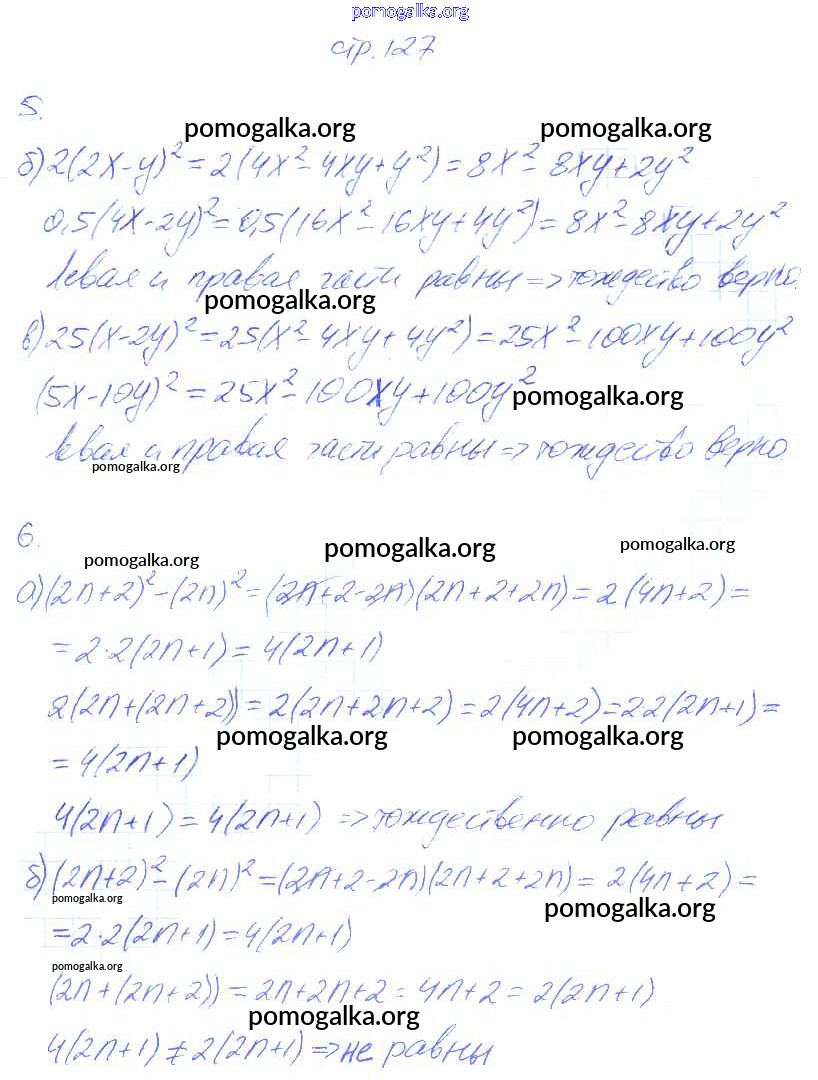 pomogalka.org
стр. 127
5.
pomogalka.org pomogalka.org
б) 2(2x-y)² = 2(4x² - 4xy + y²) = 8x² - 8xy + 2y²
0,5(4x-2y)² = 0,5(16x² - 16xy + 4y²) = 8x² - 8xy + 2y²
левая и правая части равны => тождество верно.
pomogalka.org
в) 25(x-2y)² = 25(x² - 4xy + 4y²) = 25x² - 100xy + 100y²
(5x-10y)² = 25x² - 100xy + 100y²
pomogalka.org
левая и правая части равны => тождество верно.
pomogalka.org
6.
pomogalka.org pomogalka.org pomogalka.org
а) (2n+2)² - (2n)² = (2n+2-2n)(2n+2+2n) = 2(4n+2) =
= 2·2(2n+1) = 4(2n+1)
2(2n+(2n+2)) = 2(2n+2n+2) = 2(4n+2) = 2·2(2n+1) =
pomogalka.org pomogalka.org
= 4(2n+1)
4(2n+1) = 4(2n+1) => тождественно равны
б) (2n+2)² - (2n)² = (2n+2-2n)(2n+2+2n) = 2(4n+2) =
pomogalka.org pomogalka.org
= 2·2(2n+1) = 4(2n+1)
pomogalka.org
(2n+(2n+2)) = 2n+2n+2 = 4n+2 = 2(2n+1)
pomogalka.org
4(2n+1) ≠ 2(2n+1) => не равны